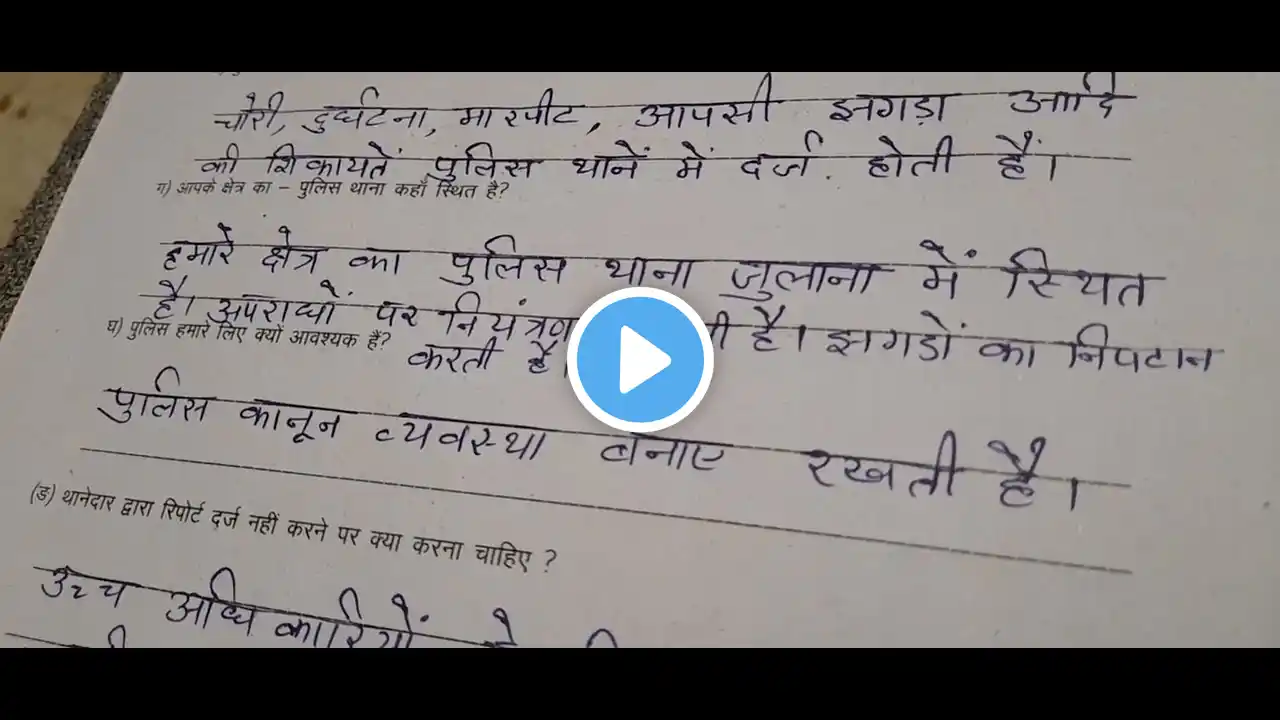 चोरी, दुर्घटना, मारपीट, आपसी झगड़ा आदि
की शिकायतें पुलिस थानें में दर्ज होती हैं।
ग) आपके क्षेत्र का – पुलिस थाना कहाँ स्थित है?
हमारे क्षेत्र का पुलिस थाना जुलाना में स्थित
है। अपराधों पर नियंत्रण है। झगडों का निपटान
घ) पुलिस हमारे लिए क्यों आवश्यक है?
करती है।
पुलिस कानून व्यवस्था बनाए रखती है।
(ङ) थानेदार द्वारा रिपोर्ट दर्ज नहीं करने पर क्या करना चाहिए ?
उच्च अधिकारियों